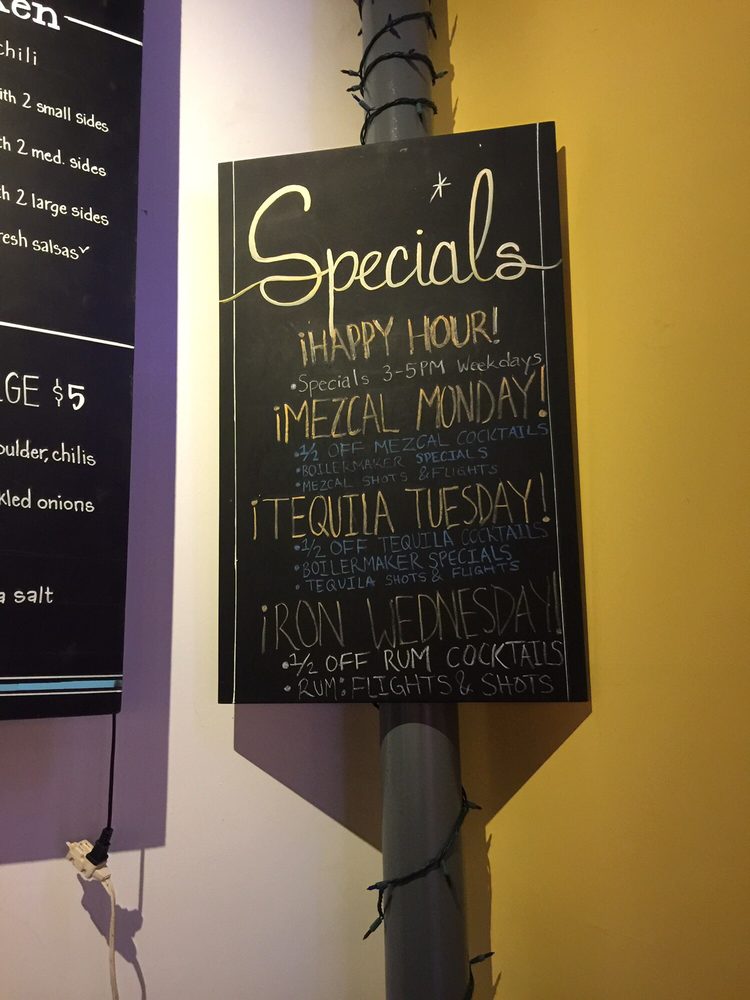 ken
chili
ith 2 small sides
th 2 med. sides
h 2 large sides
resh salsas
GE $5
oulder, chilis
kled onions
a salt
Specials
¡HAPPY HOUR!
•Specials 3-5PM Weekdays
¡MEZCAL MONDAY!
•1/2 OFF MEZCAL COCKTAILS
•BOILERMAKER SPECIALS
•MEZCAL SHOTS & FLIGHTS
¡TEQUILA TUESDAY!
•1/2 OFF TEQUILA COCKTAILS
•BOILERMAKER SPECIALS
•TEQUILA SHOTS & FLIGHTS
¡RON WEDNESDAY!
•1/2 OFF RUM COCKTAILS
•RUM: FLIGHTS & SHOTS